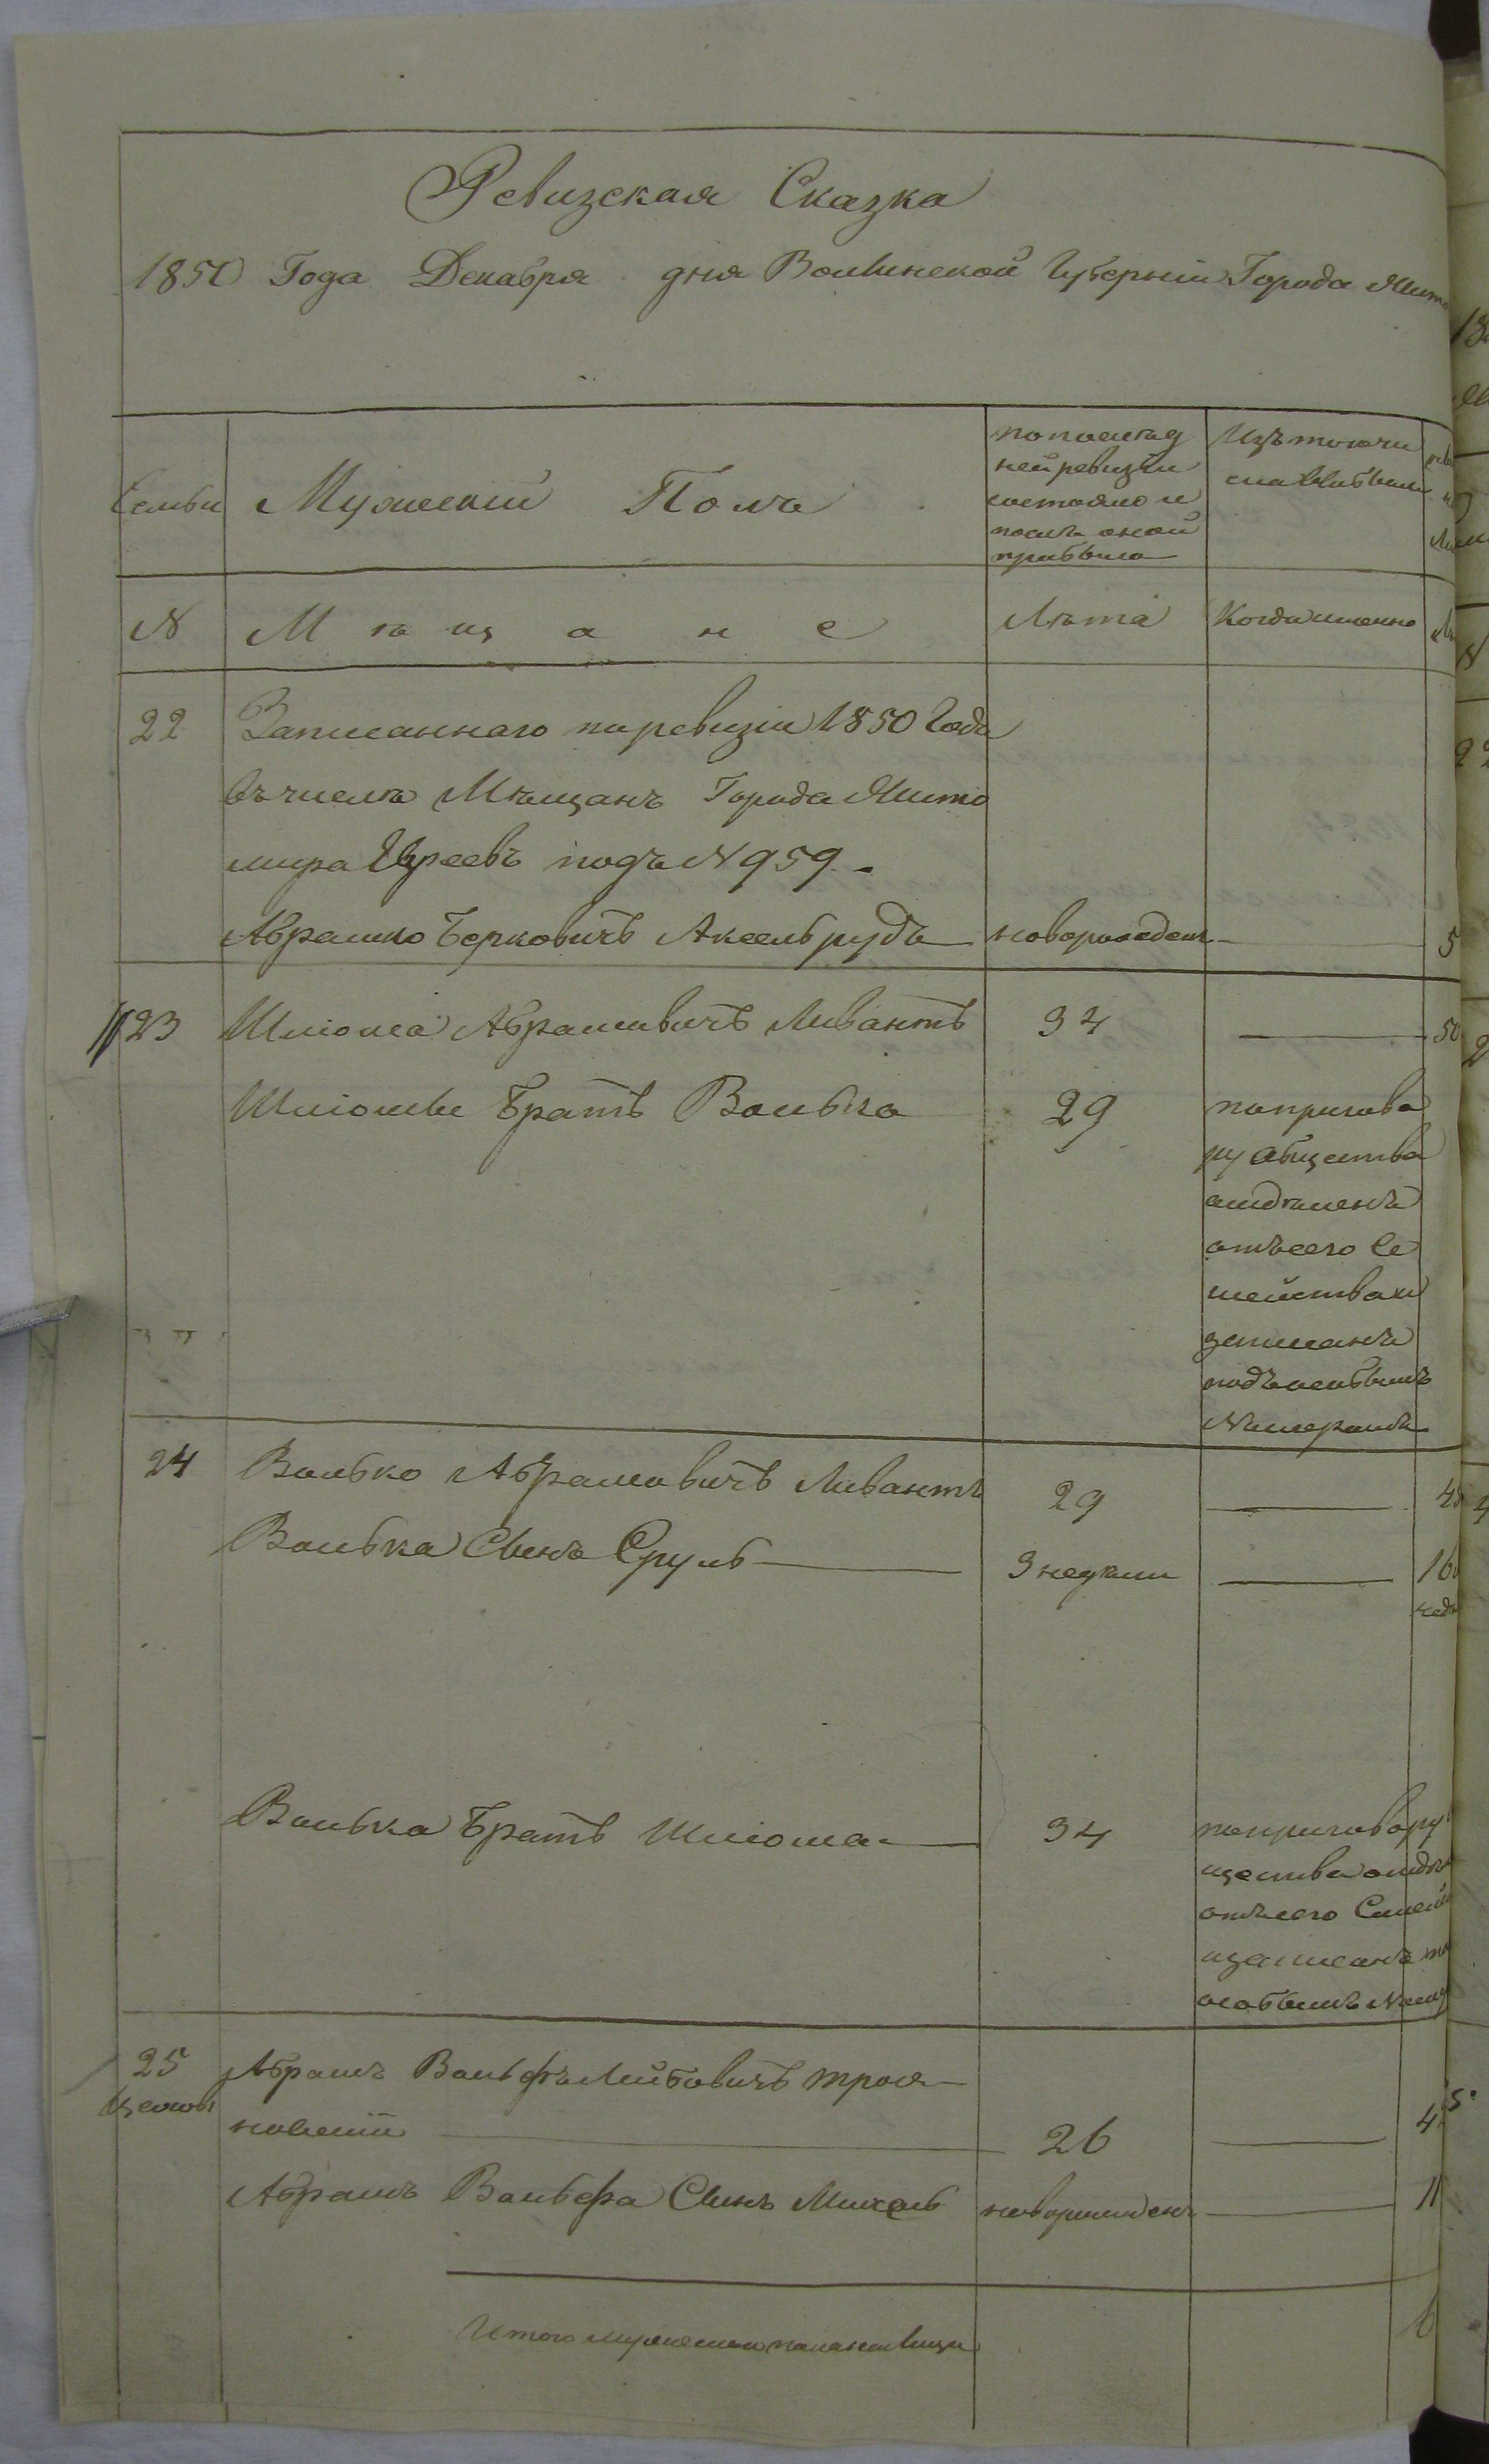 Ревизская Сказка
1850 Года Декабря дня Волынской Губерніи Города Жито
Семьи
Мужескій Полъ
по послѣд
ней ревизіи
состояло и
послѣ оной
прибыло
Изъ того чи
сла выбыло
N
М ѣ щ а н е
Лѣта
Когда именно
22
Записаннаго по ревизіи 1850 Года
въ числѣ Мѣщанъ Города Жито
мира Евреевъ подъ N 959.
Абрамко Берковичъ Аксельрудъ новорожден
5
23
Шліома Абрамовичъ Ливантъ 34
50
Шліомы братъ Волько 29
по пригово
ру общества
отдѣленъ
отъ сего се
мейства и
записанъ
подъ особымъ
Nумеромъ
24
Волько Абрамовичъ Ливантъ 29
Волька Сынъ Сруль 3 недѣли
16
недѣ
Волька братъ Шліома 34
по приговору
щества отдѣ
отъ сего Семей
и записанъ
особымъ Nуме
25
Абрамъ Вольфъ Лейбовичъ Троя
новскій 26
4
Абрамъ Вольфа Сынъ Михель новорожденъ
11
Итого мужескаго пола на лицо
6